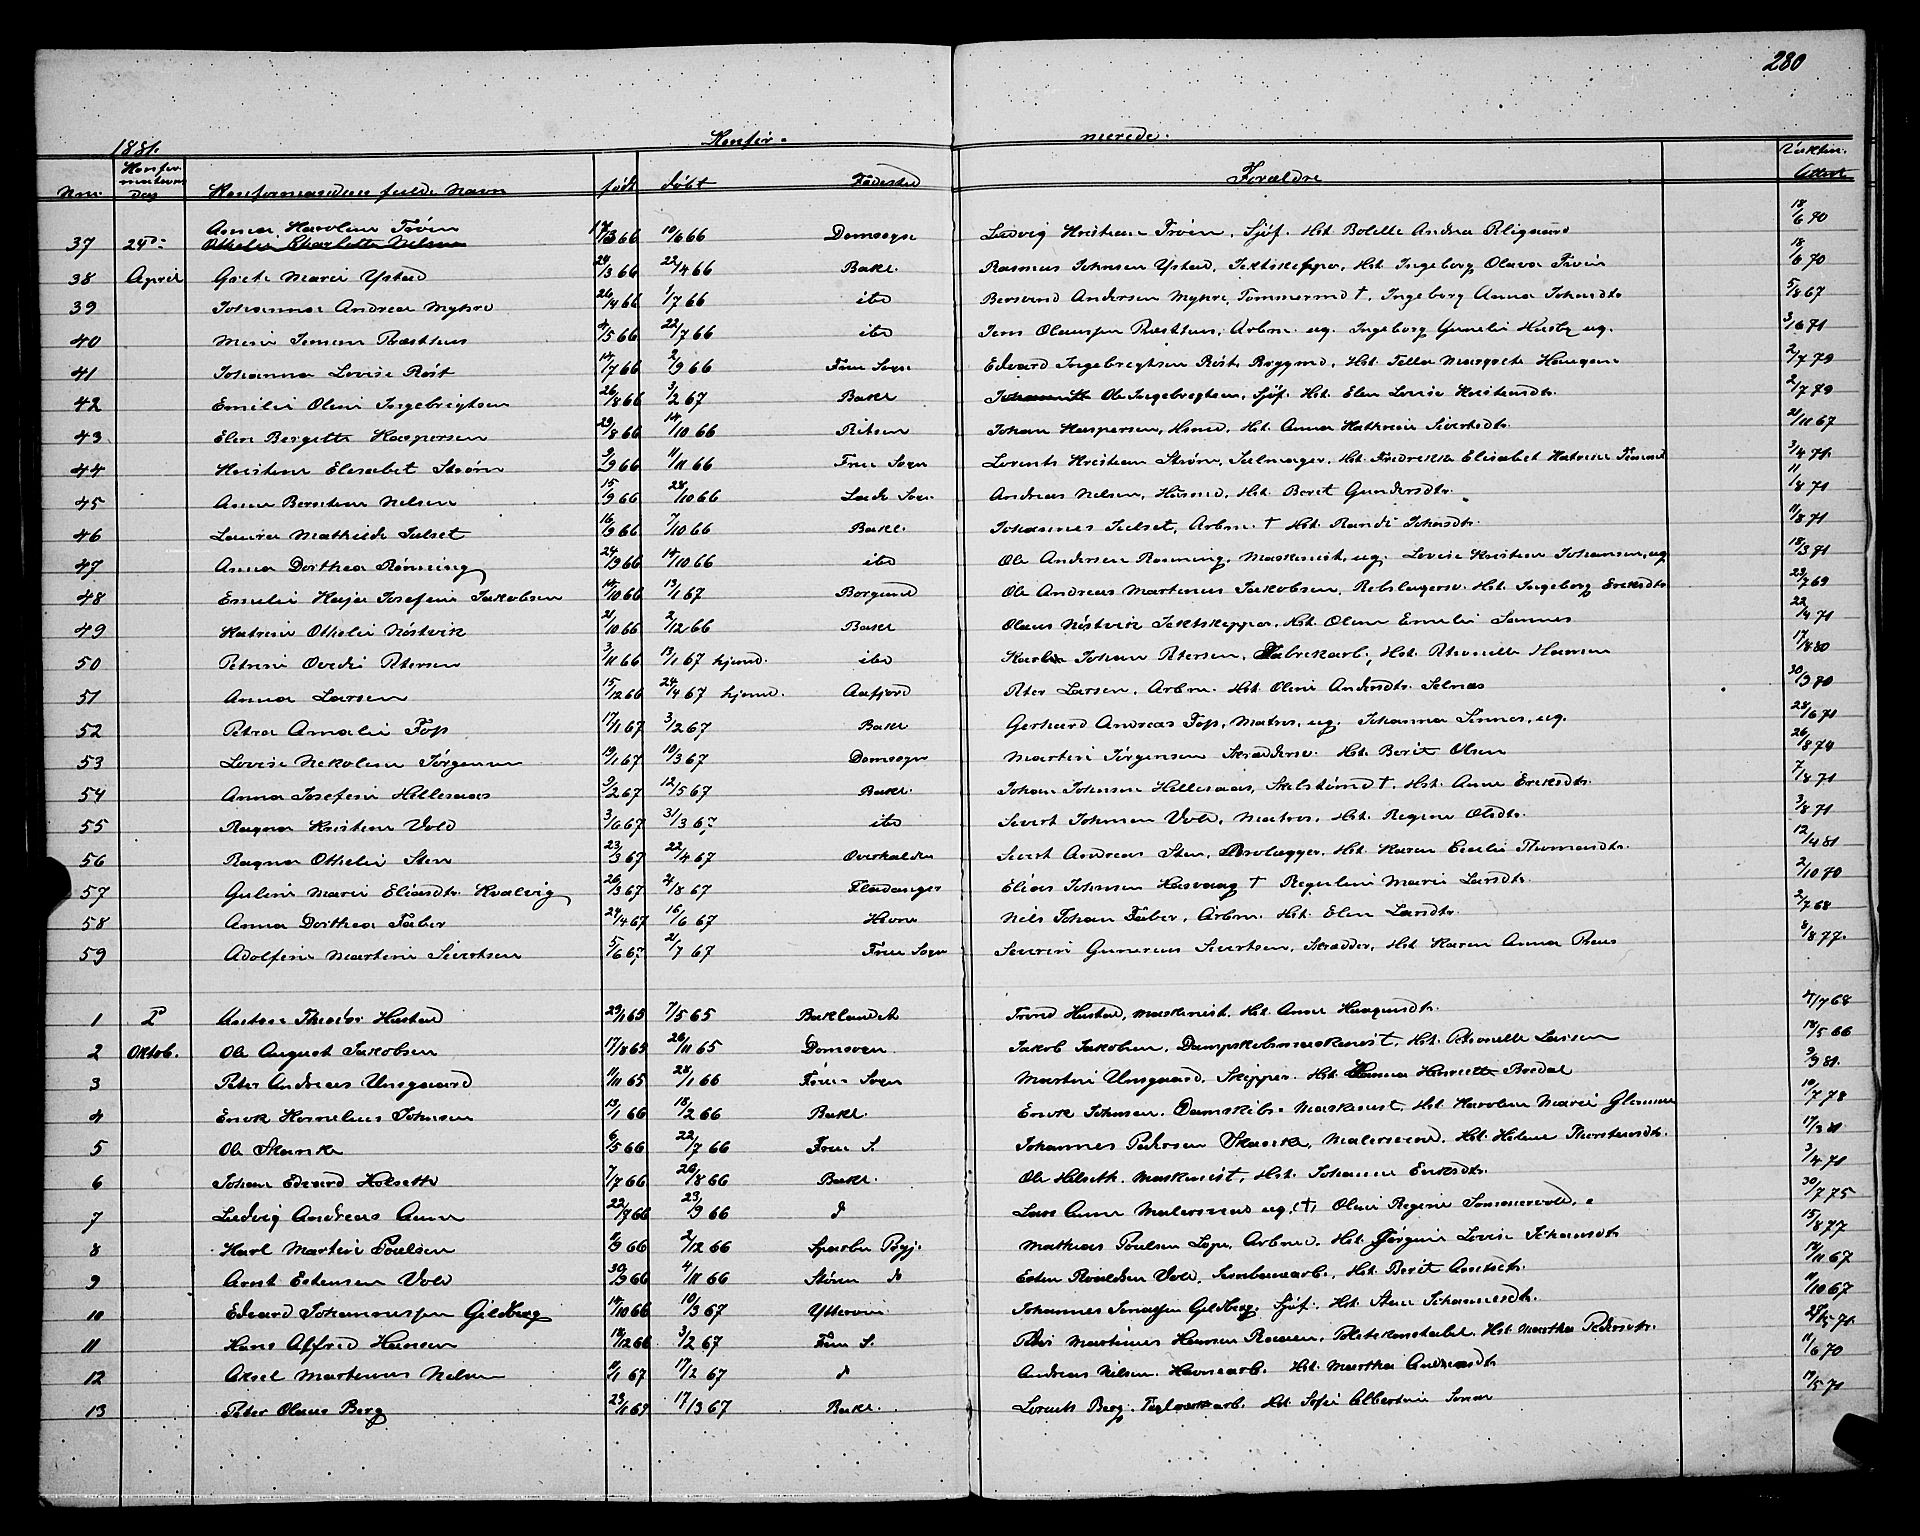 280
1881. Konfir- merede.
Nm. Konfirmations Dag Konfirmandens fulde Navn født døbt Fødested Forældre Vakcin. Attest
37 24de Anna Karoline Trøen 66 10/6 66 Domsogn Ludvig Kristian Trøen, Sjøf. Hst. Bolette Andrea 18/6 70
Othelie Charlotte Nilsen
38 April Grete Marie Ystad 24/3 66 22/4 66 Bakl. Rasmus Johnsen Ystad, Jektskipper, Hst. Ingeborg Olava Trøen 18/6 70
39 Johanna Andrea Myhre 26/4 66 1/7 66 ibd Berseund Andersen Myhre, Tømmermd †, Ingeborg Anna Johansdtr 5/8 67
40 66 22/7 66 ibd Jens Olaussen Arbm. ug. Ingeborg Gunelie Husby ug. 3/6 71
41 Johanna Lovise Røst 14/7 66 2/9 66 Frue Sogn Edvard Ingebrigtsen Røst Hst. Margrete Haugan 2/7 79
42 Emilie Oline Ingebrigtsen 26/8 66 3/2 67 Bakl Ole Ingebrigtsen, Sjöf. Hst. Elen Lovise Kristiansdtr. 2/7 79
43 Elen Bergitte Kaspersen 29/8 66 14/10 66 Ritsen Johan Kaspersen, Hsmd, Hst. Anna Kathrine Sivertsdtr. 21/11 67
44 Kristine Elisabet Strøm 9/9 66 11/11 66 Frue Sogn Lorents Kristian Strøm, Seilmager, Hst. Fredrikke Elisabet Katrine 3/4 71
45 Anne Berntine Nilsen 15/9 66 28/10 66 Lade Sogn Andreas Nilsen, Husmd, Hst. Beret Gundersdtr. 11/8 71
46 Laura Mathilde Julset 16/9 66 7/10 66 Bakl. Johannes Julset, Arbm. † Hst. Randi Johnsdtr. 11/8 71
47 Anna Dorthea Rønning 24/9 66 14/10 66 ibd Ole Andersen Rønning, Maskinist, ug. Lovise Kristine Johansen, ug 18/3 71
48 Emilie Kaja Josefine Jakobsen 14/10 66 13/1 67 Borgund Ole Andreas Martinus Jakobsen, Rebslagersv. Hst. Ingeborg Eriksdtr 23/7 69
49 Katrine Othelie Nøstvik 21/10 66 2/12 66 Bakl Olaus Nøstvik Jektskipper, Hst. Oline Emelie Sannes 22/4 71
50 Petrine Ovedie Petersen 3/11 66 13/1 67 hjemd. ibd Karl Johan Petersen, Fabrikarb., Hst. Petronelle Hansen 17/8 80
51 Anna Larsen 15/12 66 24/4 67 hjemd. Aafjord Peter Larsen, Arbm. Hst. Oline Andersdtr. Selnæs 30/9 70
52 Petra Amalie Foss 17/1 67 3/2 67 Bakl Gerhard Andreas Foss, Matros, ug. Johanna Sinnes, ug. 28/6 71
53 Lovise Nikoline Jørgensen 19/1 67 10/3 67 Domsogn Martin Jørgensen Skræddersv. Hst. Berit Olsen 26/8 74
54 Anna Josefine Hillesaas 9/2 67 12/5 67 Bakl. Johan Johnsen Hillesaas, †. Hst. Anne Eriksdtr. 7/8 71
55 Ragna Kristine Vold 67 31/3 67 ibd Sivert Johnsen Vold, Matros. Hst. Regine Olsdtr. 3/8 71
56 Ragna Othelie Sten 23/3 67 22/4 67 Overhalden Sivert Andreas Sten, Brolægger, Hst. Karen Cecilie Thomasdtr. 12/4 81
57 Guline Marie Eliasdtr. Kvalvig 26/3 67 4/8 67 Fladanger Elias Johnsen Hasvaag † Reguline Marie Larsdtr. 2/10 70
58 Anna Dorthea Faber 24/4 67 16/6 67 Hevne Nils Johan Faber, Arbm. Hst. Elen Larsdtr. 2/7 68
59 Adolfine Martine Sivertsen 5/6 67 21/7 67 Frue Sogn Severin Gunerius Sivertsen, Skrædder, Hst. Karen Anna 8/8 77.
1 2d Anton Theodor Hustad 29/1 65 7/5 65 Baklandet Trond Hustad, Maskinist. Hst. Anne Haagensdtr. 4/7 68
2 Oktob. Ole August Jakobsen 17/8 65 26/11 65 Jakob Jakobsen, Dampskibsmaskinist, Hst. Petronelle Larsen 14/5 66
3 Peter Andreas Unsgaard 11/11 65 28/1 66 Frue Sogn Martin Unsgaard, Skipper. Hst. Hanna Henriette Bredal 9/9 81.
4 Enok Kornelius Johnsen 13/1 66 18/2 66 Bakl. Enok Johnsen. Damskibs-Maskinist, Hst. Karoline Marie 10/7 78
5 Ole Skanke 6/5 66 22/7 66 Frue S. Johannes Pedersen Skanke, Malersvend, Hst. Helene Thorstensdtr. 17/3 81
6 Johan Edvard Holseth 7/7 66 26/8 66 Bakl. Ole Hilseth. Maskinist, Hst. Johanne Eriksdtr. 3/4 71
7 Ludvig Andreas Aune 22/7 66 23/9 66 d Lars Aune Malersvend ug. (†) Oline Regine Sommervold. 30/7 75
8 Karl Martin Poulsen 9/9 66 2/12 66 Sparbu Pgj. Mathias Poulsen Arbmd. Hst. Jørgine Lovise Johansdtr 15/8 77
9 Arnt Estensen Vold 30/9 66 4/11 66 Støren d Esten Roaldsen Vold, Jernbanearb., Hst. Berit Arntsdtr. 14/11 67
10 Edvard Johannessen Gildberg 14/10 66 10/3 67 Ytterøen Johannes Gildberg. Sjöf. Hst. Johannesdtr. 11/10 67
11 Hans Alfred Hansen 18/12 66 3/2 67 Frue S. Martinus Hansen Politikonstabel. Hst. Martha Pedersdtr. 28/5 71.
12 Aksel Martinus Nilsen 11/1 67 17/2 67 d Andreas Nilsen. Havnearb. Hst. Martha Andreasdtr 11/6 70
13 Peter Olaus Berg 23/1 67 17/3 67 Bakl. Lorents Berg, Teglværkarb. Hst. Sofie Albertine 19/5 71